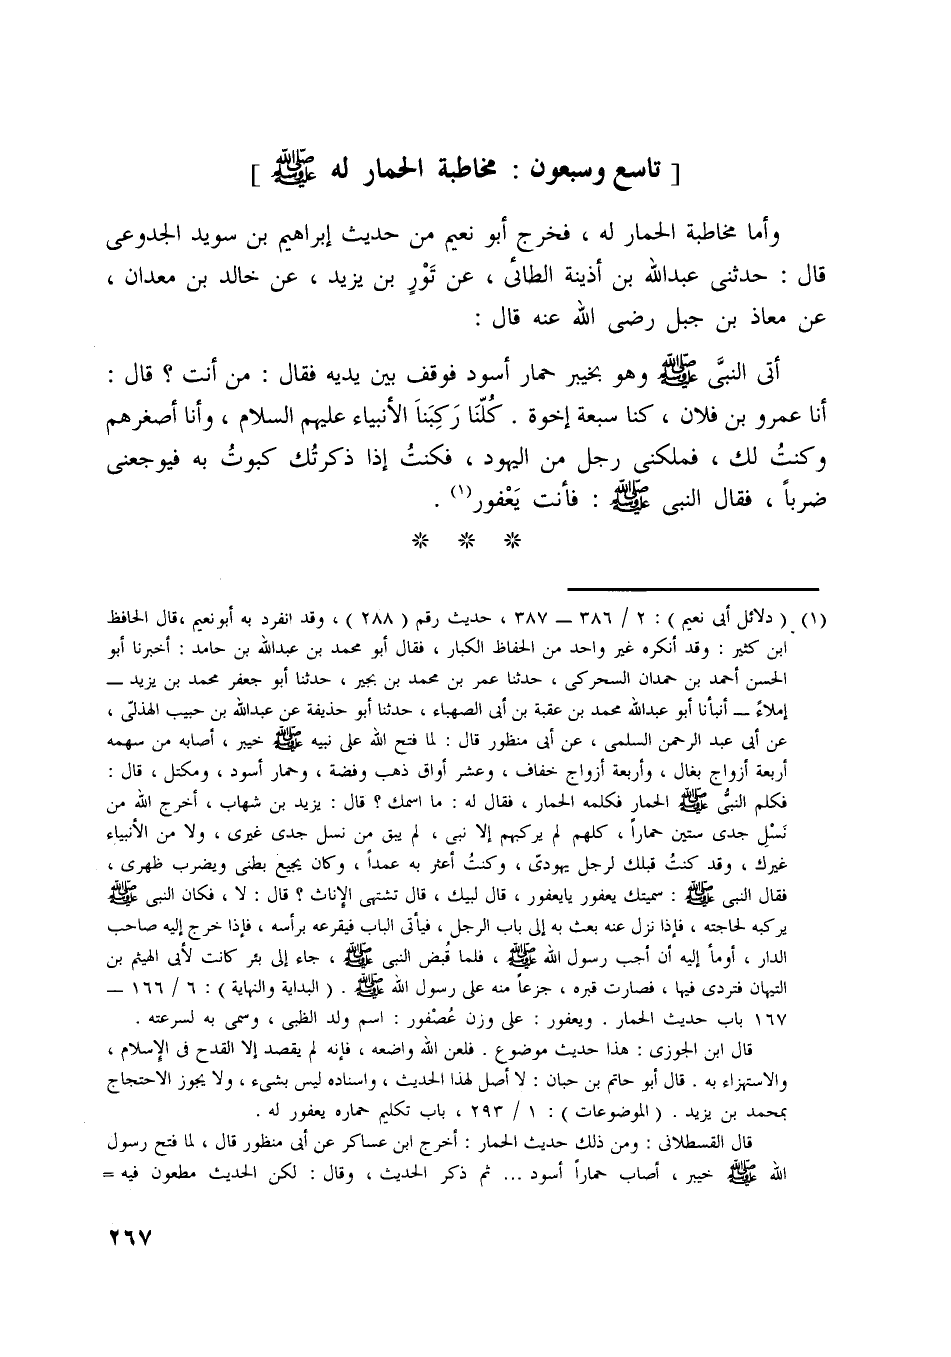 [ تاسع وسبعون : مخاطبة الحمار له ﷺ ]
وأما مخاطبة الحمار له ، فخرج أبو نعيم من حديث إبراهيم بن سويد الجدوعى
قال : حدثنى عبدالله بن أذينة الطائى ، عن ثَوْرٍ بن يزيد ، عن خالد بن معدان ،
عن معاذ بن جبل رضى الله عنه قال :
أتى النبىَّ ﷺ وهو بخيبر حمار أسود فوقف بين يديه فقال : من أنت ؟ قال :
أنا عمرو بن فلان ، كنا سبعة إخوة . كُلّنَا رَكِبَناَ الأنبياء عليهم السلام ، وأنا أصغرهم
وكنتُ لك ، فملكنى رجل من اليهود ، فكنتُ إذا ذكرتُك كبوتُ به فيوجعنى
ضرباً ، فقال النبى ﷺ : فأنت يَعْفور(١) .
* * *
(١) ( دلائل أبى نعيم ) : ٢ / ٣٨٦ ــ ٣٨٧ ، حديث رقم ( ٢٨٨ ) ، وقد انفرد به أبونعيم ،قال الحافظ
ابن كثير : وقد أنكره غير واحد من الحفاظ الكبار ، فقال أبو محمد بن عبدالله بن حامد : أخبرنا أبو
الحسن أحمد بن حمدان السحركى ، حدثنا عمر بن محمد بن بجير ، حدثنا أبو جعفر محمد بن يزيد ــ
إملاءً ــ أنبأنا أبو عبدالله محمد بن عقبة بن أبى الصهباء ، حدثنا أبو حذيفة عن عبدالله بن حبيب الهذلىّ ،
عن أبى عبد الرحمن السلمى ، عن أبى منظور قال : لما فتح الله على نبيه ﷺ خيبر ، أصابه من سهمه
أربعة أزواج بغال ، وأربعة أزواج خفاف ، وعشر أواق ذهب وفضة ، وحمار أسود ، ومكتل ، قال :
فكلم النبىُّ ﷺ الحمار فكلمه الحمار ، فقال له : ما اسمك ؟ قال : يزيد بن شهاب ، أخرج الله من
نَسْلِ جدى ستين حماراً ، كلهم لم يركبهم إلا نبى ، لم يبق من نسل جدى غيرى ، ولا من الأنبياء
غيرك ، وقد كنتُ قبلك لرجل يهودىّ ، وكنتُ أعثر به عمداً ، وكان يجيع بطنى ويضرب ظهرى ،
فقال النبى ﷺ : سميتك يعفور يايعفور ، قال لبيك ، قال تشتهى الإناث ؟ قال : لا ، فكان النبى ﷺ
يركبه لحاجته ، فإذا نزل عنه بعث به إلى باب الرجل ، فيأتى الباب فيقرعه برأسه ، فإذا خرج إليه صاحب
الدار ، أومأ إليه أن أجب رسول الله ﷺ ، فلما قُبض النبى ﷺ ، جاء إلى بئر كانت لأبى الهيثم بن
التيهان فتردى فيها ، فصارت قبره ، جزعاً منه على رسول الله ﷺ . ( البداية والنهاية ) : ٦ / ١٦٦ ــ
١٦٧ باب حديث الحمار . ويعفور : على وزن عُصْفور : اسم ولد الظبى ، وسمى به لسرعته .
قال ابن الجوزى : هذا حديث موضوع . فلعن الله واضعه ، فإنه لم يقصد إلا القدح فى الإسلام ،
والاستهزاء به . قال أبو حاتم بن حبان : لا أصل لهذا الحديث ، واسناده ليس بشىء ، ولا يجوز الاحتجاج
بمحمد بن يزيد . ( الموضوعات ) : ١ / ٢٩٣ ، باب تكليم حماره يعفور له .
قال القسطلانى : ومن ذلك حديث الحمار : أخرج ابن عساكر عن أبى منظور قال ، لما فتح رسول
الله ﷺ خيبر ، أصاب حماراً أسود ... ثم ذكر الحديث ، وقال : لكن الحديث مطعون فيه =
٢٦٧